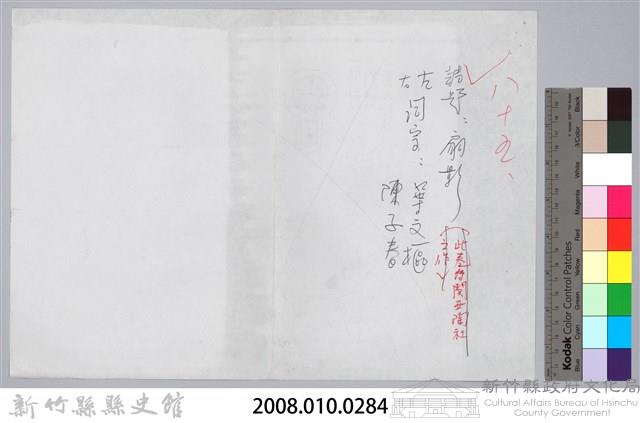 八十五、
詩題：扇影
(此卷存関西陶社
之作)
左
右 詞宗：葉文樞
陳子春
Black
3/Color
White
Magenta
Red
Yellow
Green
Cyan
Blue
Kodak Color Control Patches
新竹縣縣史館
2008.010.0284
新竹縣政府文化局
Cultural Affairs Bureau of Hsinchu
County Government